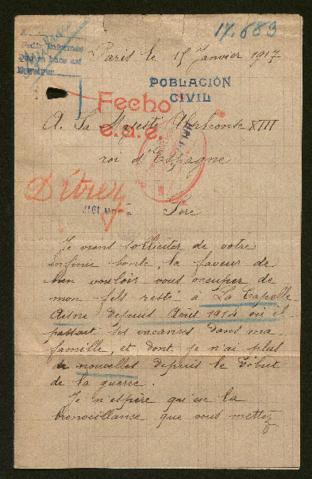 17.689
Paris le 15 Janvier 1917
POBLACIÓN
CIVIL
Fecho
e.a.e.
A Sa Majesté Alphonse XIII
roi d'Espagne
Sire
Je viens solliciter de votre
infinie bonté, la faveur de
bien vouloir vous occuper de
mon fils resté à La Capelle
Aisne depuis Août 1914 où il
passait les vacances dans ma
famille, et dont je n'ai plus
de nouvelles depuis le début
de la guerre.
Je n'espère qu'en la
bienveillance que vous mettez